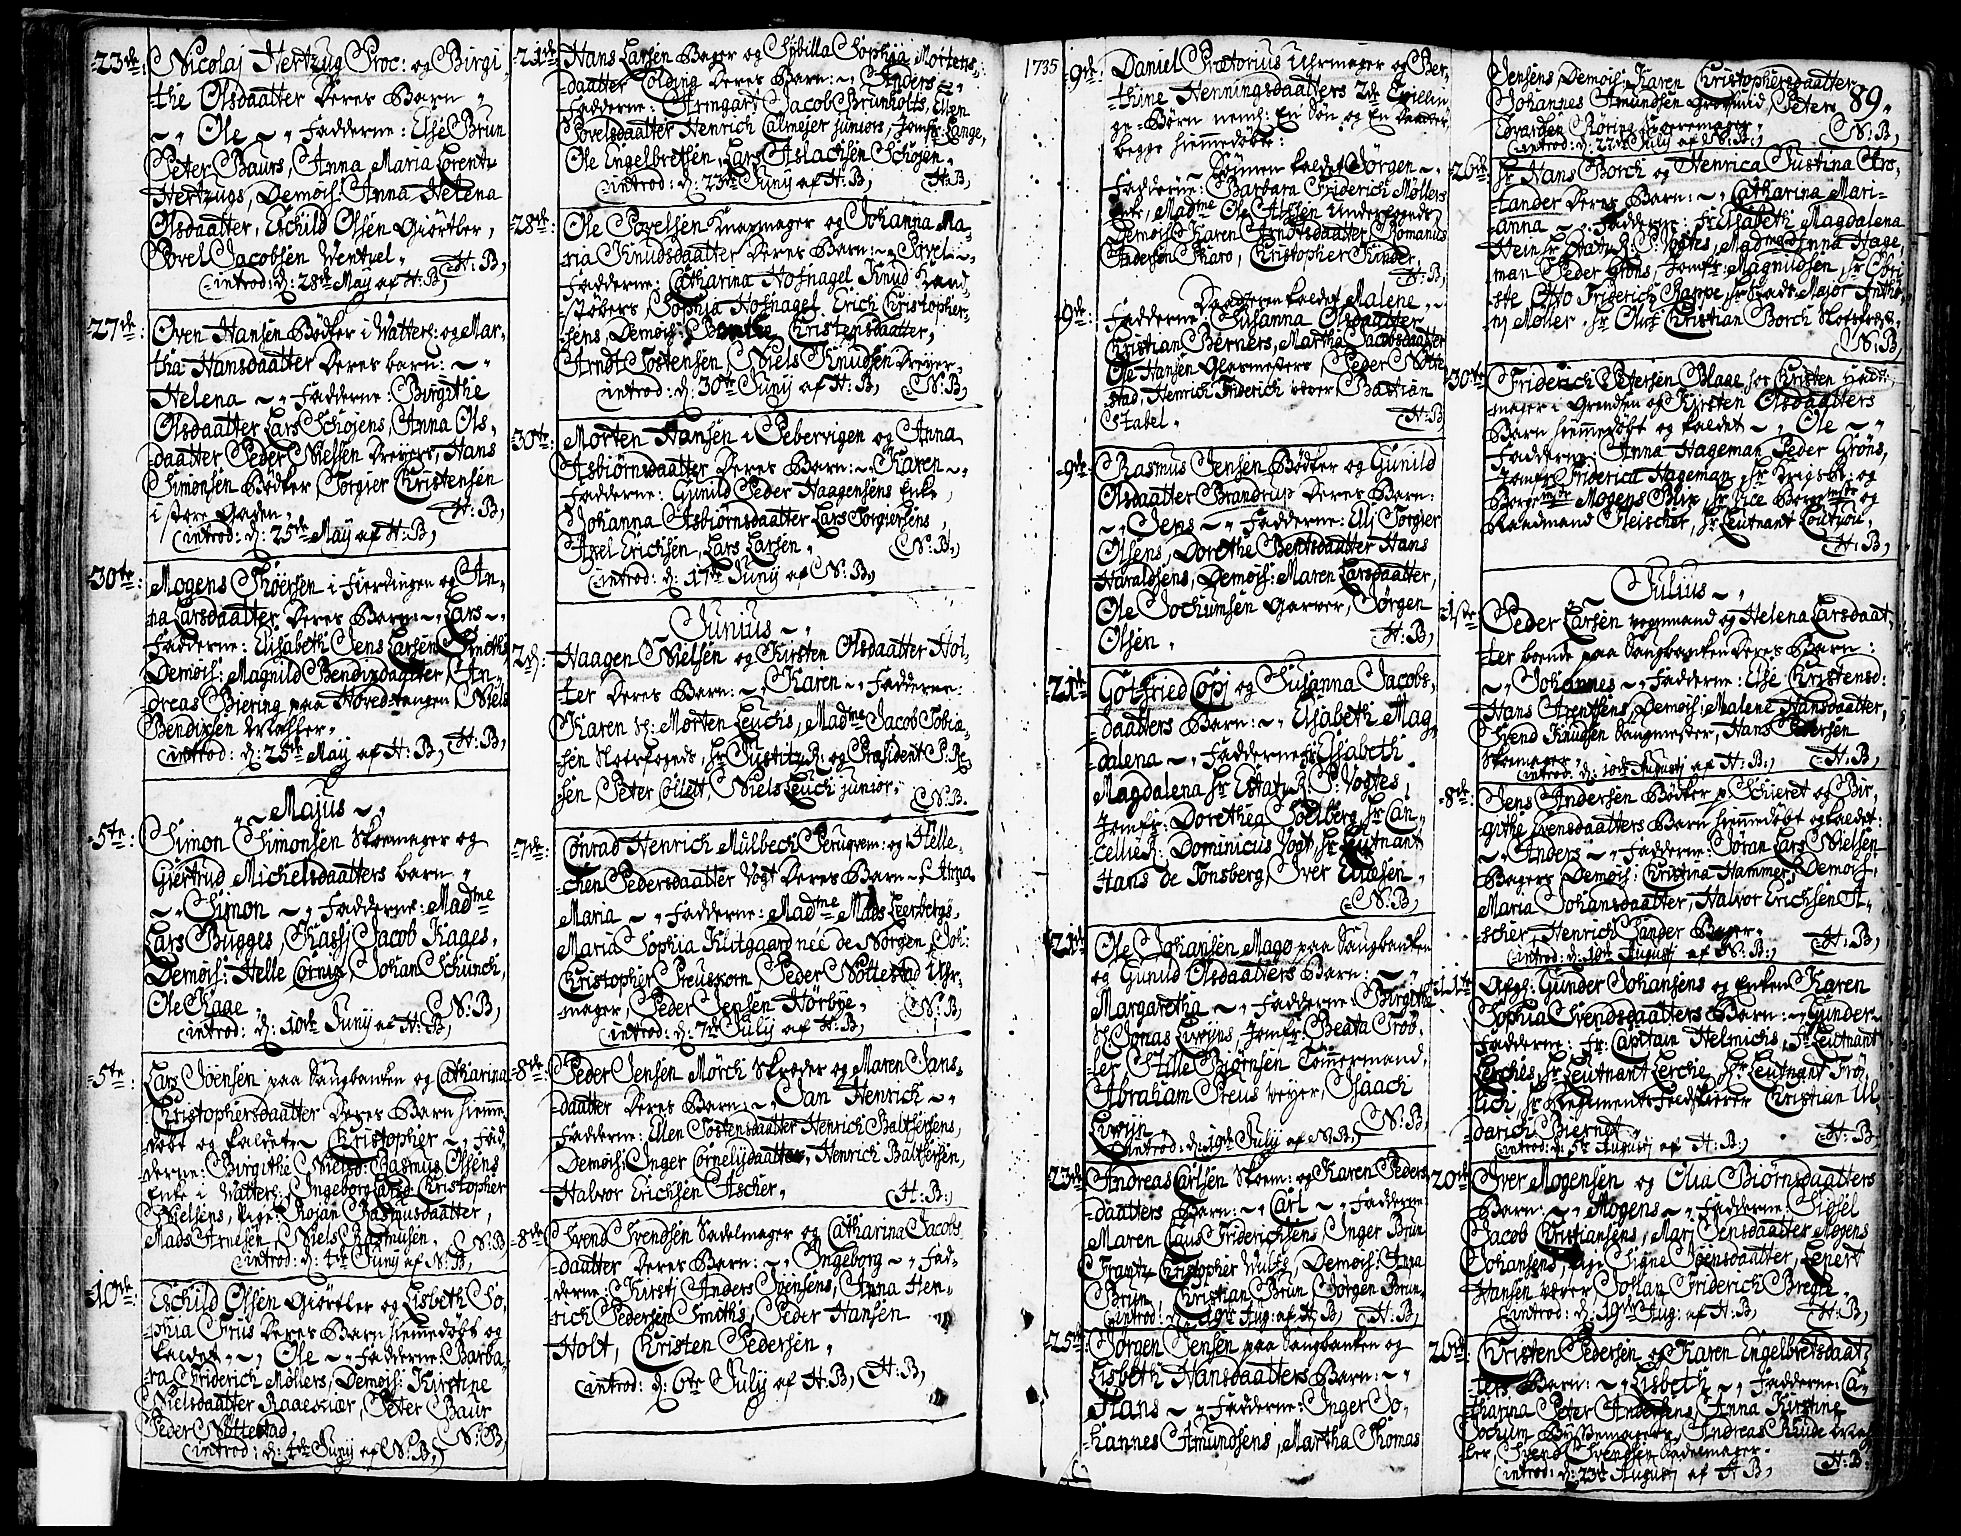 23de: Nicolaj Hertzug Proc: og Birgi,
the Olsdaatter Deres Barn
Ole Fadderne: Else Brun
Peter Baurs, Anna Maria Lorentz
Hertzugs, Demois: Anna Helena
Olsdaatter, Eschild Olsen Giörtler,
Povel Jacobsen Wentzel. H:B,
introd: d: 28de Maij af H:B,
27de: Oven Hansen Bödker i Watterl: og Mar-
tha Hansdaatter Deres barn:
Helena Fadderne: Birgithe
Olsdaatter Lars Schöjens, Anna Ols,
daatter Peder Nielsen Dreyers, Hans
Simonsen Bödker, Torgier Christensen
i store Gaden. H:B,
introd: d: 25de Maij af H:B,
30te: Mogens Thöersen i Fierdingen og An,
na Larsdaatter Deres Barn: Lars
Fadderne: Elisabeth Jens Larsen Smeths
Demois: Magnild Bendixdaatter, An,
dreas Biering paa Hovedtangen, Niels
Bendixen
introd: d: 25de Maij af H:B, H:B,
Majus
5te: Simon Simonsen Skoemager og
Giertrud Michelsdaatters barn
Simon Fadderne: Madme
Lars Bugges, Kassj Jacob Kages,
Demois: Helle Cornix, Johan Schunch,
Ole Kaae N:B,
introd: d: 10de Junij af H:B,
5te: Lars Jöensen paa Saugbanken og Catharina
Christophersdaatter Deres Barn hiemme
döbt og kaldet Christopher Fad-
derne: Birgithe Niels: Rasmus Olsens
Enke i Watterl: Ingeborg Christopher
Nielsens, Pige Rojan Rasmusdaatter,
Mads Arnesen, Niels Rasmusen. N:B
introd: d: 4de Junij af N:B,
10de: Eschild Olsen Giörtler og Lisbeth So,
phia Friis Deres Barn hiemedöbt og
kaldet Ole Fadderne: Barba-
ra Friderich Möllers, Demois: Kirstine
Nielsdaatter Raaeskiær, Peter Baur
Peder Nöttestad, N:B,
introd: d: 4de Junij af N:B,
21de: Hans Larsen Bager og Sybilla Sophia Mortens:
daatter Colding Deres Barn: Anders
Fadderne: Armgart Jacob Brunholts, Ellen
Povelsdaatter Henrich Calmejer juniors, Jomfr: Lange,
Ole Engelbretsen, Lars Aslachsen Schöjen.
introd: d: 23de Junij af H:B, H:B,
28de: Ole Povelsen Knapmager og Johanna Ma-
ria Knudsdaatter Deres Barn: Povel
Fadderne: Catharina Hofnagel Knud Kand-
stöbers, Sophia Hofnagel Erich Christopher-
sens, Demois: Christensdaatter,
Arndt Tostensen, Niels Knudsen Dreyer.
introd: d: 30te Junij af H:B, N:B,
30te: Morten Hansen i Pebervigen og Anna
Asbiörnsdaatter Deres Barn: Karen
Fadderne: Gunild Peder Haagensens Enke,
Johanna Asbiörnsdaatter Lars Torgiersens,
Axel Erichsen, Lars Larsen. N:B,
introd: d: 17de Junij af N:B,
Junius
2d: Haagen Nielsen og Kirsten Olsdaatter Hol-
ter Deres Barn: Karen Fadderne:
Karen Morten Leuchs, Madme Jacob Tobia-
sen Slotsfogeds, Hr Justitzr: og Præsident P:Re,
sen, Peter Collett, Niels Leuch junior. N:B.
7de: Conrad Henrich Mülbech Peruqvem: og Helle-
chen Pedersdaatter Vogt Deres Barn Anna
Maria Fadderne: Madme Mads Leerbergs,
Maria Sophia Klitgaard née de Norgen, Joh:
Christopher Preuskorn, Peder Nöttestad Uhr-
mager, Peder Jensen Hörbye. N:B,
introd: d: 7de Julij af H:B,
8de: Peder Jensen Mörch Skræder og Maren Jans-
daatter Deres Barn: Jan Henrich
Fadderne: Ellen Tostensdaatter Henrich Baltzersens,
Demois: Inger Cornelijdaatter, Henrich Baltzersen,
Halvor Erichsen Ascher. H:B,
8de: Svend Svendsen Sadelmager og Catharina Jacobs
daatter Deres Barn: Ingeborg Fad-
derne: Kirstj Anders Svensens, Anna Hen-
rich Pedersen Smiths, Peder Hansen
Holt, Christen Pedersen.
introd: d: 6te Julij af H:B, H:B,
1735
9de: Daniel Prætorius Uhrmager og Ber-
thine Henningsdaatters 2de Tvillin,
ge-Börn neml: En Sön og En Daatter
begge hiemmedöbt:
Sönnen kaldet Jörgen
Fadderne: Barbara Friderich Möllers
Enke, Madme Ole Underfogeds,
Demois: Karen Arndtsdaatter, Romanus
Andersen Skaro, Christopher Kinder,
H:B,
9de: Daatteren kaldet Malene
Fadderne: Susanna Olsdaatter
Christian Berners, Martha Jacobsdaatter
Ole Hansen Glarmesters, Peder Nötte
stad, Henrich Friderich Bastian
Stabel. H:B
9de: Rasmus Jensen Bödker og Gunild
Olsdaatter Brandrup Deres Barn:
Jens Fadderne: Elj Torgier
Olsens, Dorethe Bentsdaatter Hans
Haraldsens, Demois: Maren Larsdaatter,
Ole Jochumsen Garver, Jörgen
Olsen. H:B,
21de: Gotfried Copj og Susanna Jacobs,
daatters Barn: Elsabeth Mag,
dalena Fadderne: Elsabeth
Magdalena Hr Etatzr: P: Vogtes,
Jomfr: Dorethea Soelberg, Hr Can-
cellier: Dominicus Vogt, Hr Leutnant
Hans de Tonsberg, Over
N:B,
21de: Ole Johansen Magö paa Saugbanken
og Gunild Olsdaatters Barn:
Margaretha Fadderne: Birgithe
Sl: Jonas Luvijns, Jomfr: Beata Trob,
ler Atlle Biörnsen Tömmermand,
Abraham Preus Isaach
Luvijn, N:B,
introd: d: 19de Julij af N:B,
23de: Andreas Carlsen Skoem: og Karen Peders
daatters Barn: Carl Fadderne:
Maren Claus Friderichsens, Inger Brun
Frantz Christopher Wulfs, Demois: Anna
Brun, Christian Brun, Jörgen Brun.
introd: d: 19de Aug: af H:B, H:B,
25de: Jörgen Jensen paa Saugbanken og
Lisbeth Hansdaatters Barn:
Hans Fadderne: Inger Jo,
hannes Amundsens, Martha Thomas
89.
Jensens, Demois: Karen Christophersdaatter
Johannes Amundsen Peter
Edvardsen N:B,
introd: d: 22de Julij af N:B,
26de: Hr Hans Borch og Henrica Justina Ars,
tander Deres Barn: Catharina Mari-
anna Fadderne: Fr: Elsabeth Magdalena
Hein Hr Etatzr: Vogtes, Madme Anna Hage
man Peder Gröns, Jomfr: Magnildsen, Hr Obri
ste Otto Friderich Rappe, Hr Stads Major Antho
nj Möller, Hr Oluf Christian Borch
N:B,
30te: Friderich Petersen Blage for Christen
mager i Grendsen og Kirsten Olsdaatters
Barn hiemmedöbt og kaldet Ole
Fadderne: Anna Hageman Peder Gröns,
Jomfr: Friderica Hageman, Hr Krigsr: og
Borgemester Mogens Birk, Hr Vice Borgemester og
Raadmand Fleischer, Hr Leutnant Coutuin,
H:B,
Julius
1ste: Peder Larsen og Helena Larsdaat,
ter boende paa Saugbanken Deres Barn:
Johannes Fadderne: Else Christensd:
Hans Arentsens, Demois: Malene Hansdaatter,
Svend Knudsen Saugmester, Hans Pedersen
Skoemager. H:B,
introd: d: 10de Augustj af H:B,
8de: Jens Andersen Bödker p Schieret og Bir,
githe Evensdaatters Barn hiemmedöbt og kaldet:
Anders Fadderne: Jöran Lars Nielsen
Bagers, Demois: Christina Hammer, Demois:
Maria Johansdaatter, Halvor Erichsen A-
scher, Henrich Zander Bager. H:B,
introd: d: 19de Augustj af N:B,
11te Afg: Gunder Johansens og Enken Karen
Sophia Svendsdaatters Barn: Gunder
Fadderne: Fr: Capitain Helmichs, Fr Leutnant
Lerches, Hr Leutnant Lerche, Hr Leutnant Frö,
lich, Hr Regiments Feldskierer Christian Ul,
darich Bierndt. H:B
introd: d: 5te Augustj af H:B,
20de: Over Mogensen og Olia Biörnsdaatters
Barn: Mogens Fadderne: Sidsel
Jacob Christiansens, Marj Jensdaatter Mogens
Johansens, Pige Signe Joensdaatter, Lenert
Hansen Johan Friderich Bregle.
introd: d: 19de Aug: af H:B, H:B,
26de: Christen Pedersen og Karen Engelbretsdaat,
ters Barn: Lisbeth Fadderne: Ca-
tharina Peter Andersens, Anna Kirstine
Jochum Byssemagers, Andreas Knude
Svend Svendsen Sadelmager. H:B.
introd: d: 23de Augustj af H:B,